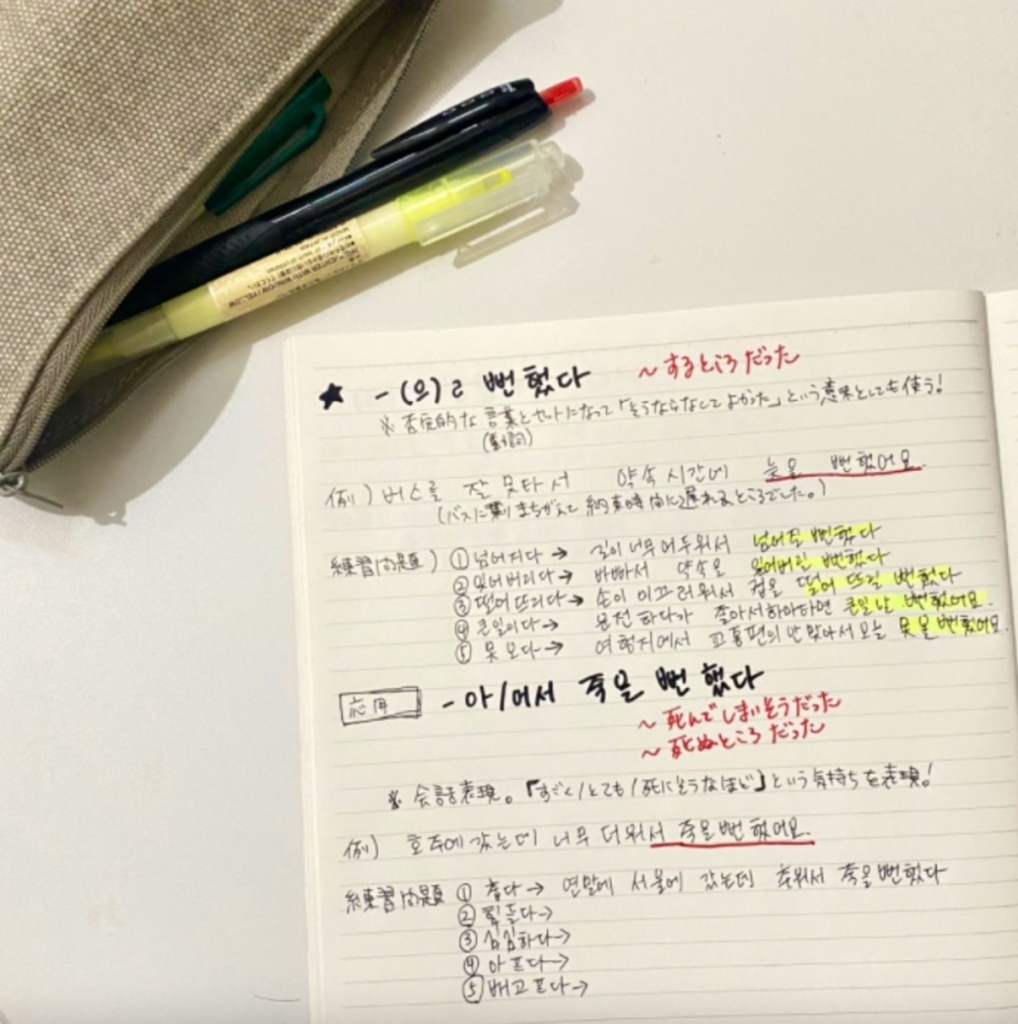 ★ -(으)ㄹ 뻔 했다 ~するところだった
※ 否定的な 言葉とセットになって「そうならなくてよかった」という意味としても使う!
(動詞)
例) 버스를 잘 못 타서 약속 시간에 늦을 뻔 했어요.
(バスに乗りまちがえて 約束時間に遅れるところでした。)
練習問題) ① 넘어지다 → 길이 너무 어두워서 넘어질 뻔했다
② 잊어버리다 → 바빠서 약속을 잊어버릴 뻔했다
③ 떨어뜨리다 → 손이 미끄러워서 컵을 떨어뜨릴 뻔했다
④ 큰일이다 → 운전하다가 졸아서 하마타면 큰일날 뻔했어요.
⑤ 못 오다 → 여행지에서 교통편의 안 맞아서 오늘 못 올 뻔했어요.
応用 -아/어서 죽을 뻔 했다
~死んでしまいそうだった
~死ぬところだった
※ 会話表現。「すごく/とても/死にそうなほど」という気持ちを表現!
例) 호주에 갔는데 너무 더워서 죽을 뻔 했어요.
練習問題 ① 춥다 → 연말에 서울에 갔는데 추워서 죽을 뻔 했다
② 힘들다 →
③ 심심하다 →
④ 아프다 →
⑤ 배고프다 →